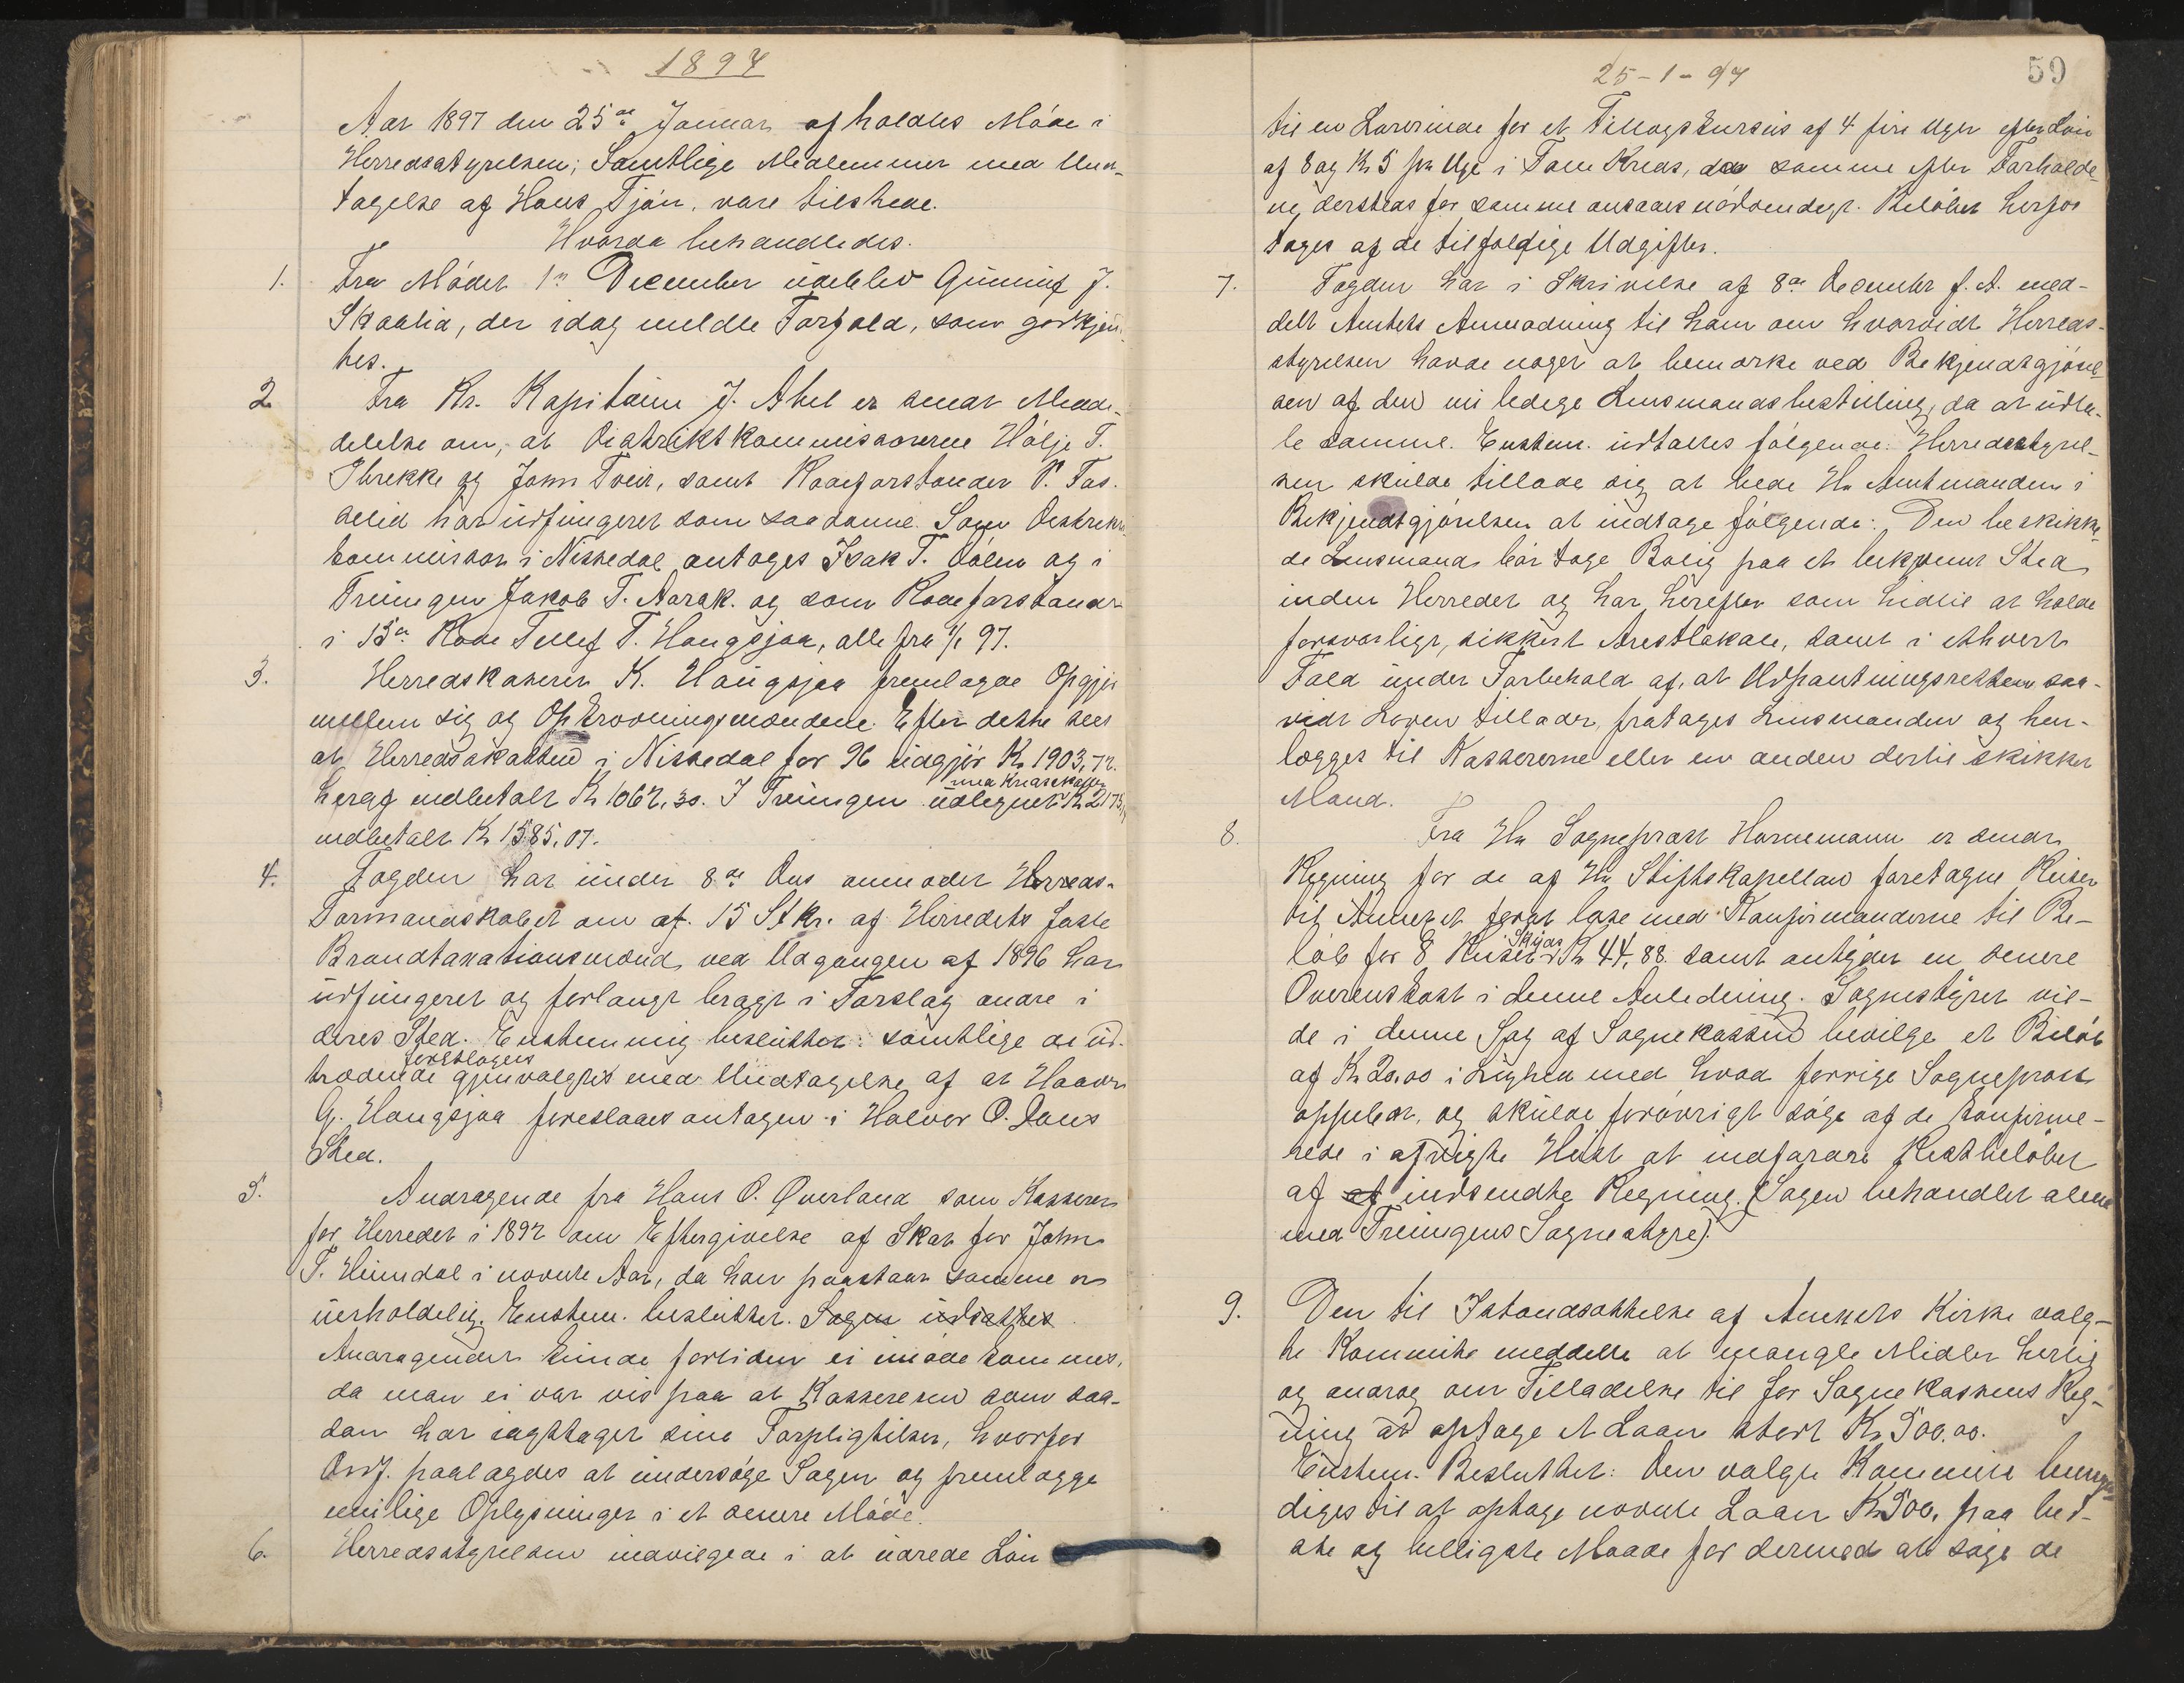 1897
Aar 1897 den 25de Januar afholdtes Møde i
Herredsstyrelsen; Samtlige Medlemmer med Und-
tagelse af Hans Tjøn, vare tilstede.
Hvorda behandledes.
1. Fra Mødet 1ste December udeblev Gunnuf J.
Skaalid, der idag meldte Forfald, som godkjen-
tes.
2 Fra Hr. Kapitain J. Abel er sendt Medde-
delelse om, at Distriktkommissærerne Hølje T.
Threkke og John Tveit, samt Rodeforstander P. Fos.
selid har udfungeret som saadanne. Som Distrikts
kommissær i Nissedal antages Isak T. Dalen og i
Treungen Jakob T. Aarak. og som Rodeforstander
i 13de Rode Tellef T. Haugsjaa, alle fra 1/1 97.
3. Herredskaserer K. Haugsjaa fremlagde Opgjør
mellem sig og Opkrævningsmændene. Efter dette sees
at Herredsskatten i Nissedal for 96 udgjør Kr 1903,72.
med Kredsskatten
heraf indbetalt Kr 1067,30. I Treungen udlignet Kr 2173,
indbetalt Kr 1385,07.
4. Fogden har under 8de Dns anmodet Herreds-
Formandskabet om at 15 Stkr. af Herredets faste
Brandtaxationsmænd, ved Udgangen af 1896 har
udfungeret og forlangt bragt i Forslag andre i
deres Sted. Enstemmig besluttet: samtlige de ud-
foreslagers
trædende gjenvalgtes med Undtagelse af at Haavor
G. Haugsjaa foreslaaes antagen i Halvor O. Dons
Sted.
5. Andragende fra Hans O. Qverland som Kasserer
for Herredet i 1892 om Eftergivelse af Skat for John
T. Heimdal i nævnte Aar, da han paastaar samme er
uerholdelig. Enstem. besluttet. Sagen udsættes
Andragendet kunde fortiden ei imødekommes,
da man ei var vis paa at Kassereren som saa-
dan har iagttaget sine Forpligtelser, hvorfor
Ordf. paalagdes at undersøge Sagen og fremlægge
mulige Oplysninger i et senere Møde.
6. Herredsstyrelsen indvilgede i at udrede Løn
25-1-97
59
til en Lærerinde for et Tillægskursus af 4 fire Uger efter Løn
af 8 og Kr 5 pr Uge i Tom Kreds, da samme efter Forholde-
ne dersteds for samme ansaaes nødvendigt. Beløbet herfor
tages af de tilfældige Udgifter.
7. Fogden har i Skrivelse af 8de December f. A. med-
delt Amtets Anmodning til ham om hvorvidt Herreds-
styrelsen havde noget at bemærke ved Bekjendtgjørel-
sen af den nu ledige Lensmandsbestilling, da at udta-
le samme. Enstem. udtaltes følgende: Herredsstyrel-
sen skulde tillade sig at bede Hr Amtmanden i
Bekjendtgjørelsen at indtage følgende: Den beskikke-
de Lensmand bør tage Bolig paa et bekvemt Sted
inden Herredet og har herefter som hidtil at holde
forsvarligt, sikkert Arestlokale, samt i ethvert
Fald under Forbehold af, at Udpantningsretten saa-
vidt Loven tillader, fratages Lensmanden og hen-
lægges til Kassererne eller en anden dertil skikket
Mand.
8. Fra Hr Sogneprest Hornemann er sendt
Regning for de af Hr Stiftskapellan foretagne Reiser
til Annexet forat læse med Konfirmanderne til Be-
Skyds
løb for 8 Reiser Kr 44,88. samt antyder en senere
Overenskost i denne Anledning. Sognestyret vil-
de i denne Sag af Sognekassen bevilge et Beløb
af Kr 20,00 i Lighed med hvad forrige Sogneprest
oppebar, og skulde forøvrigt søge af de konfirme-
rede i afvigte Høst at indfordre Restbeløbet
af af indsendte Regning. (Sagen behandlet alene
med Treungens Sognestyre).
9. Den til Istandsættelse af Annexets Kirke valg-
te Kommite meddelte at mangle Midler hertil
og androg om Tilladelse til for Sognekassens Reg-
ning at optage et Laan stort Kr 500.00.
Enstem. Besluttet: Den valgte Kommite bemyn-
diges til at optage nævnte Laan Kr 500, paa bed-
ste og billigste Maade for dermed at søge de